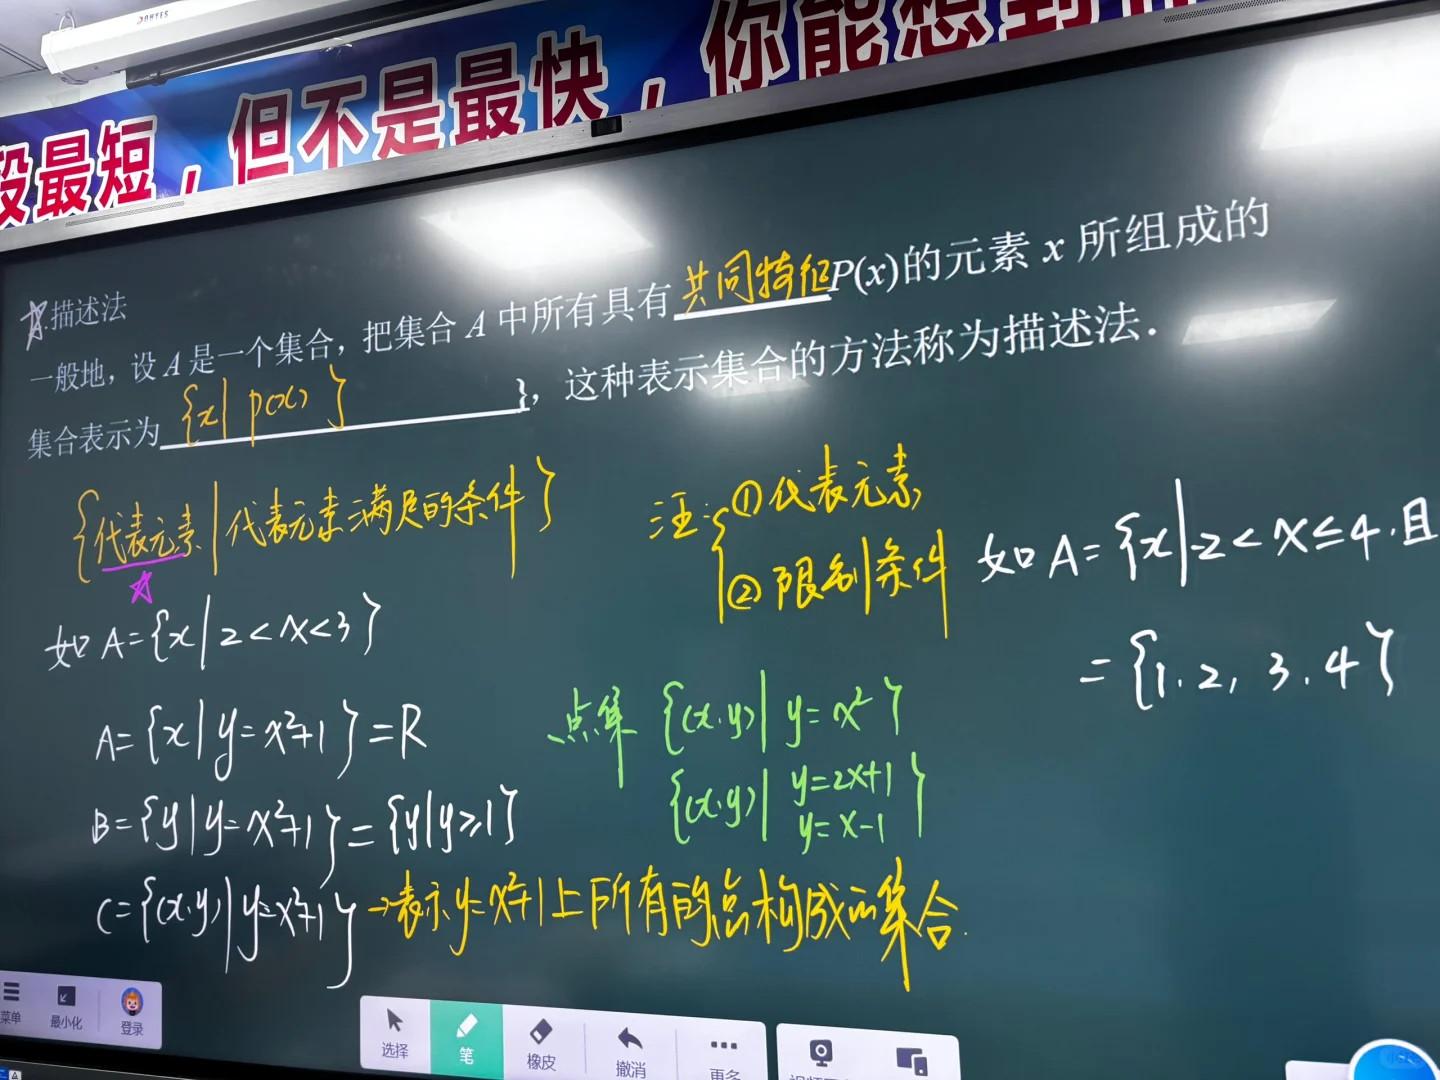 DONYES
段最短，但不是最快，你能想到
描述法
一般地，设 A 是一个集合，把集合 A 中所有具有共同特征P(x)的元素 x 所组成的
集合表示为{x| p(x) } }，这种表示集合的方法称为描述法．
{代表元素|代表元素满足的条件}
注:{①代表元素
②限制条件
如 A={x|2<x<3}
如 A={x|-2<x≤4.且
={1.2, 3.4}
A={x|y=x²+1}=R
B={y|y=x²+1}={y|y≥1}
C={(x.y)|y=x²+1}→表示y=x²+1上所有的点构成的集合.
点集 {(x.y)|y=x²}
{(x.y)| y=2x+1
y=x-1 }
菜单
最小化
登录
选择
笔
橡皮
撤消
更多